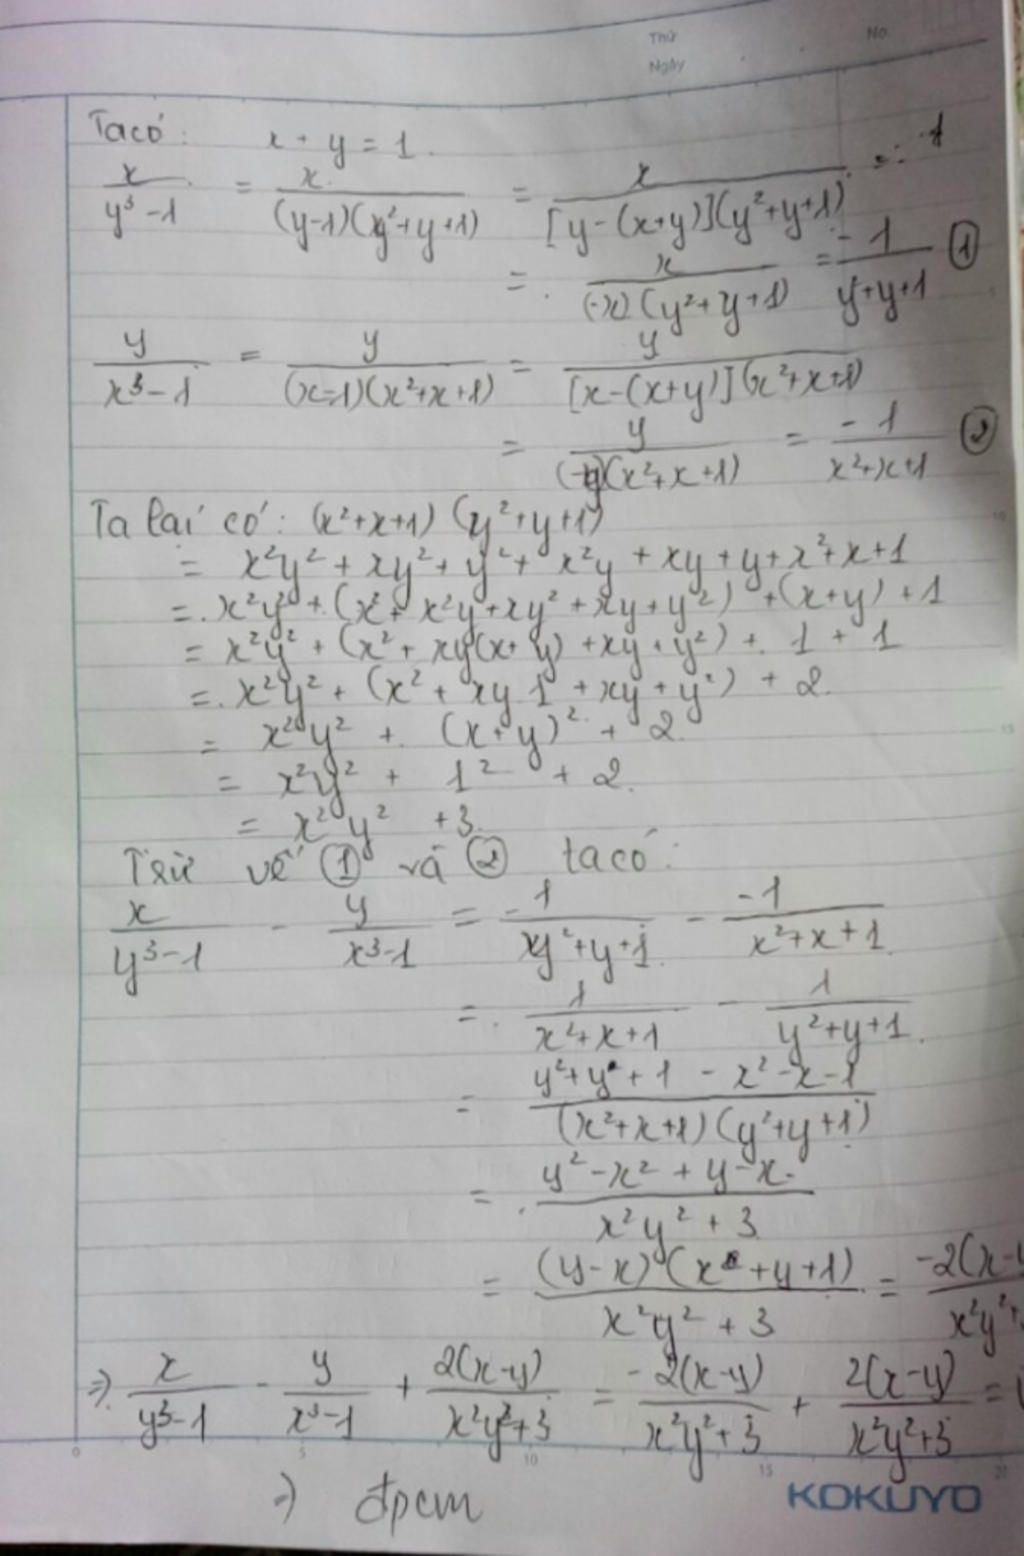 Thứ
No.
Ngày
Ta có: x + y = 1.
x/(y³-1) = x/((y-1)(y²+y+1)) = x/([y-(x+y)](y²+y+1))
= x/((-x)(y²+y+1)) = -1/(y²+y+1) ①
y/(x³-1) = y/((x-1)(x²+x+1)) = y/([x-(x+y)](x²+x+1))
= y/((-y)(x²+x+1)) = -1/(x²+x+1) ②
Ta lại có: (x²+x+1) (y²+y+1)
= x²y² + xy² + y² + x²y + xy + y + x² + x + 1
= x²y² + (x² + x²y + xy² + xy + y²) + (x+y) + 1
= x²y² + (x² + xy(x+y) + xy + y²) + 1 + 1
= x²y² + (x² + xy.1 + xy + y²) + 2.
= x²y² + (x+y)² + 2.
= x²y² + 1² + 2.
= x²y² + 3.
Trừ vế ① và ② ta có:
x/(y³-1) - y/(x³-1) = -1/(y²+y+1) - -1/(x²+x+1)
= 1/(x²+x+1) - 1/(y²+y+1).
= (y²+y+1 - x²-x-1)/((x²+x+1)(y²+y+1))
= (y²-x² + y-x)/(x²y²+3)
= ((y-x)(x+y+1))/(x²y²+3) = -2(x-y
x²y²+
⇒ x/(y³-1) - y/(x³-1) + 2(x-y)/(x²y²+3) = -2(x-y)/(x²y²+3) + 2(x-y)/(x²y²+3) =
0 5 10 15 20
⇒ đpcm
KOKUYO